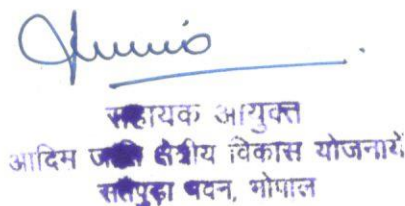 सहायक आयुक्त
आदिम जाति क्षेत्रीय विकास योजनायें
सतपुड़ा भवन, भोपाल